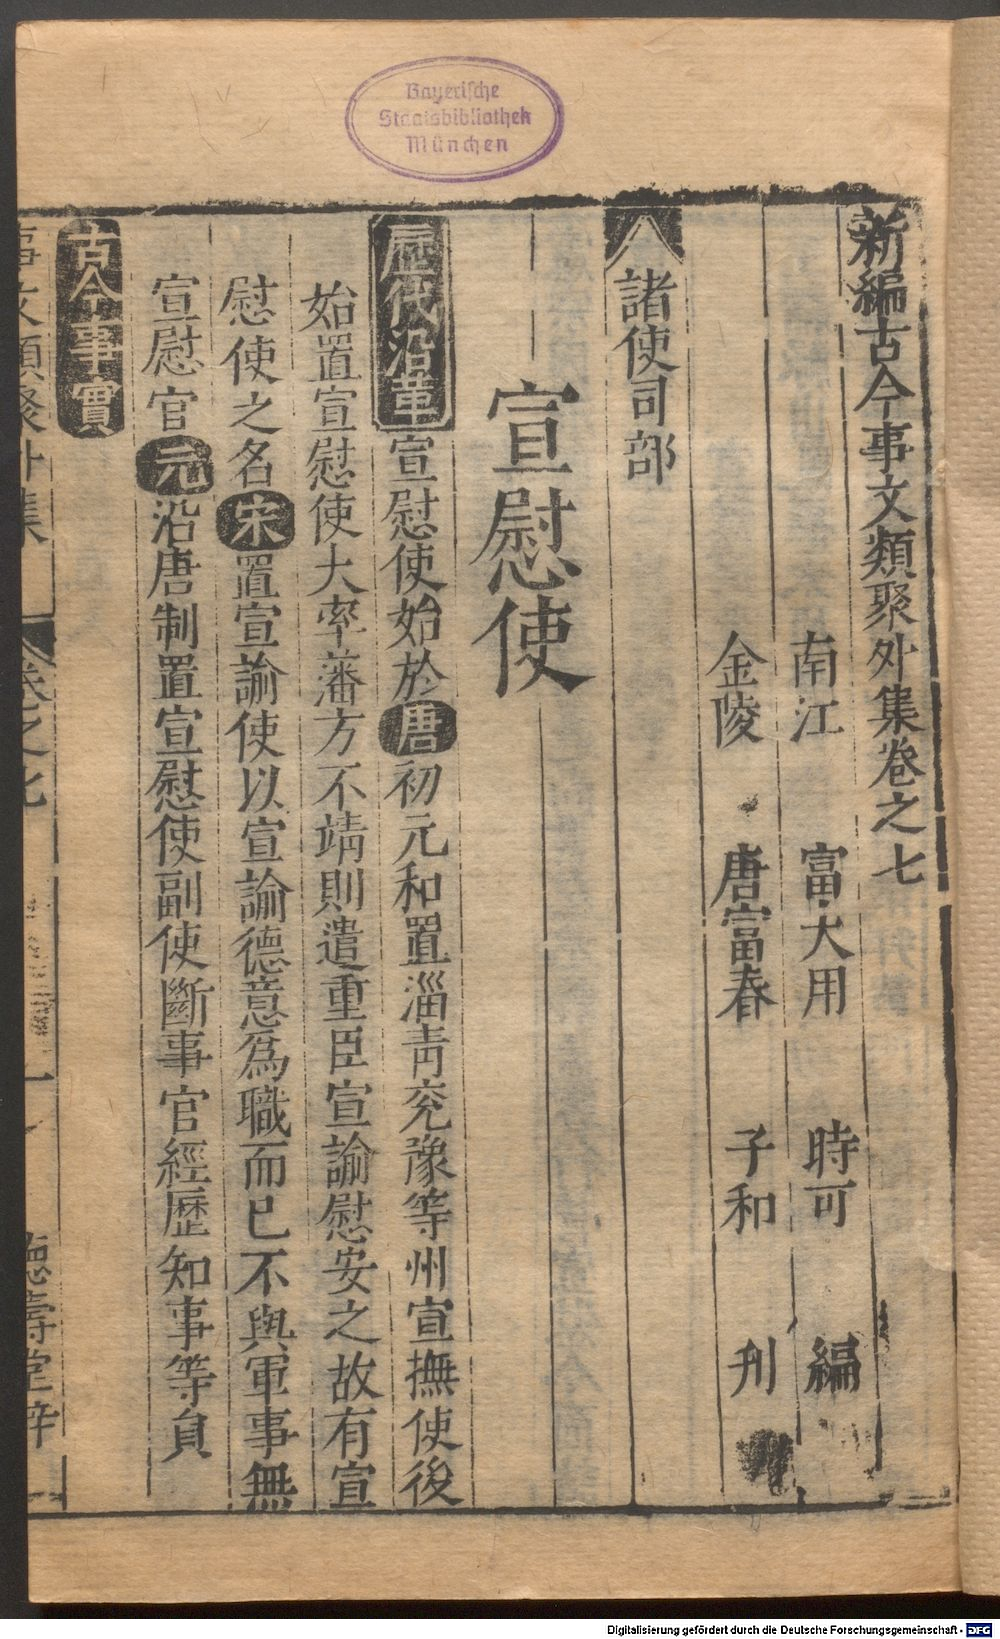 Bayerische
Staatsbibliothek
München
新編古今事文類聚外集卷之七
南江　富大用　時可　編
金陵　唐富春　子和　刋
諸使司部
宣慰使
歷代沿革宣慰使始於唐初元和置淄青兖豫等州宣撫使後
始置宣慰使大率藩方不靖則遣重臣宣諭慰安之故有宣
慰使之名宋置宣諭使以宣諭德意爲職而已不與軍事無
宣慰官元沿唐制置宣慰使副使斷事官經歷知事等員
古今事實
事文類聚外集　卷之七　一　德壽堂梓
Digitalisierung gefördert durch die Deutsche Forschungsgemeinschaft - DFG